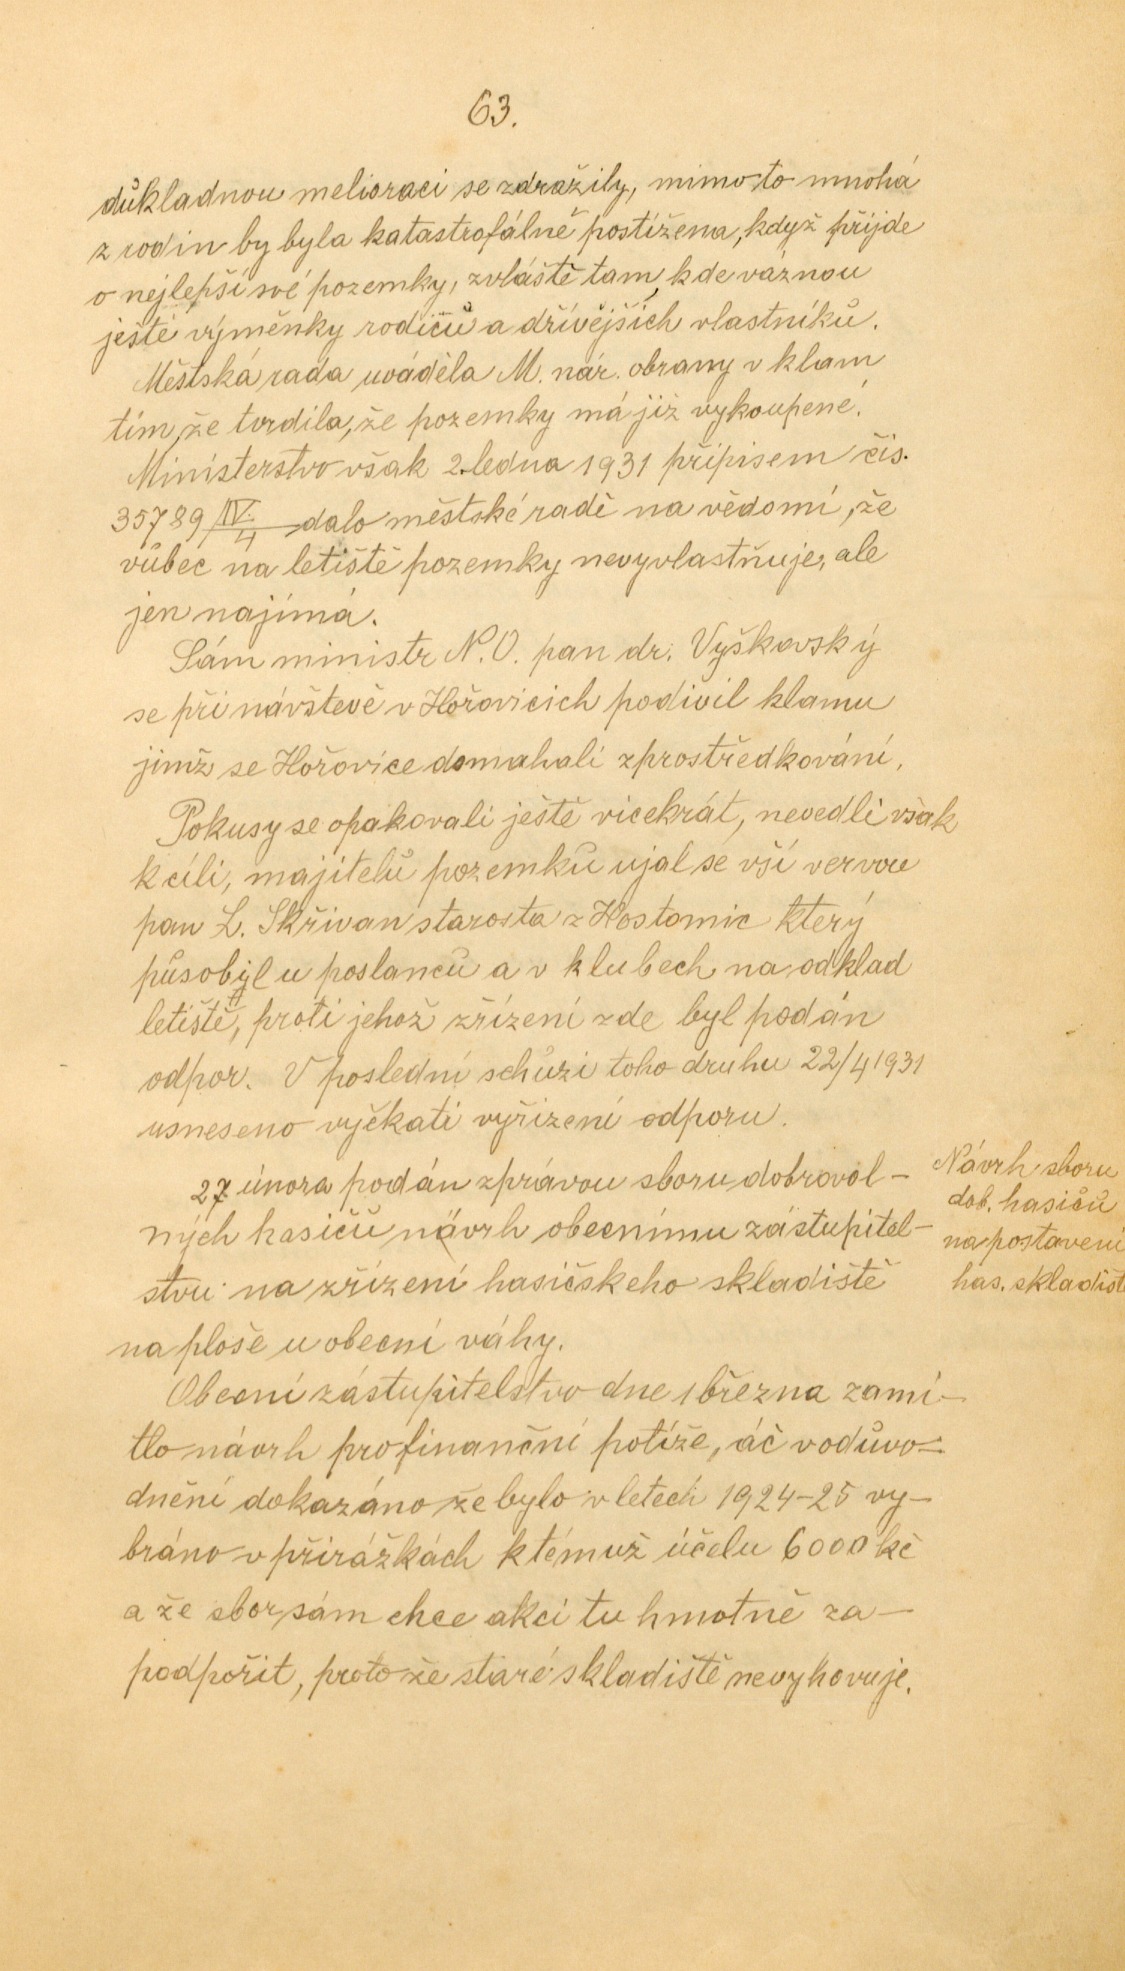 63.
důkladnou melioraci se zdražily, mimo to mnohá
z rodin by byla katastrofálně postižena, když přijde
o nejlepší své pozemky, zvláště tam, kde váznou
ještě výměnky rodičů a dřívějších vlastníků.
Městská rada uváděla M. nár. obrany v klam
tím, že tvrdila, že pozemky má již vykoupené.
Ministerstvo však 2. ledna 1931 přípisem čís.
35789/IV./4 dalo městské radě na vědomí, že
vůbec na letiště pozemky nevyvlastňuje, ale
jen najímá.
Sám ministr N. O. pan dr. Vyškovský
se při návštevě v Hořovicich podivil klamu
jimž se Hořovice domahali zprostředkování.
Pokusy se opakovali ještě vicekrát, nevedli však
k cíli, majitelů pozemků ujal se vší vervou
pan L. Skřivan starosta z Hostomic který
působyl u poslanců a v klubech na odklad
letiště, proti jehož zřízení zde byl podán
odpor. V poslední schůzi toho druhu 22/4 1931
usneseno vyčkati vyřízení odporu.
27. února podán zprávou sboru dobrovol-
ných hasičů návrh obecnímu zástupitel-
stvu na zřízení hasičskeho skladiště
na ploše u obecní váhy.
Návrh sboru
dob. hasičů
na postavení
has. skladiště
Obecní zástupitelstvo dne 1 března zamí-
tlo návrh pro finanční potíže, áč v odůvo-
dnění dokazáno že bylo v letech 1924-25 vy-
bráno v přirážkách k témuž účelu 6000 kč
a že sbor sám chce akci tu hmotně za-
podpořit, proto že staré skladiště nevyhovuje.